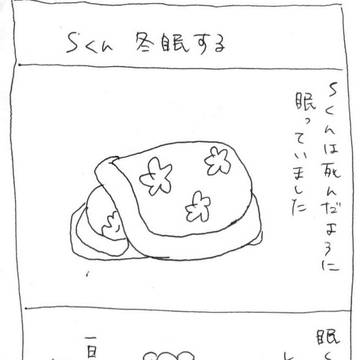 Sくん 冬眠する
Sくんは死んだように
眠っていました
眠く
一日